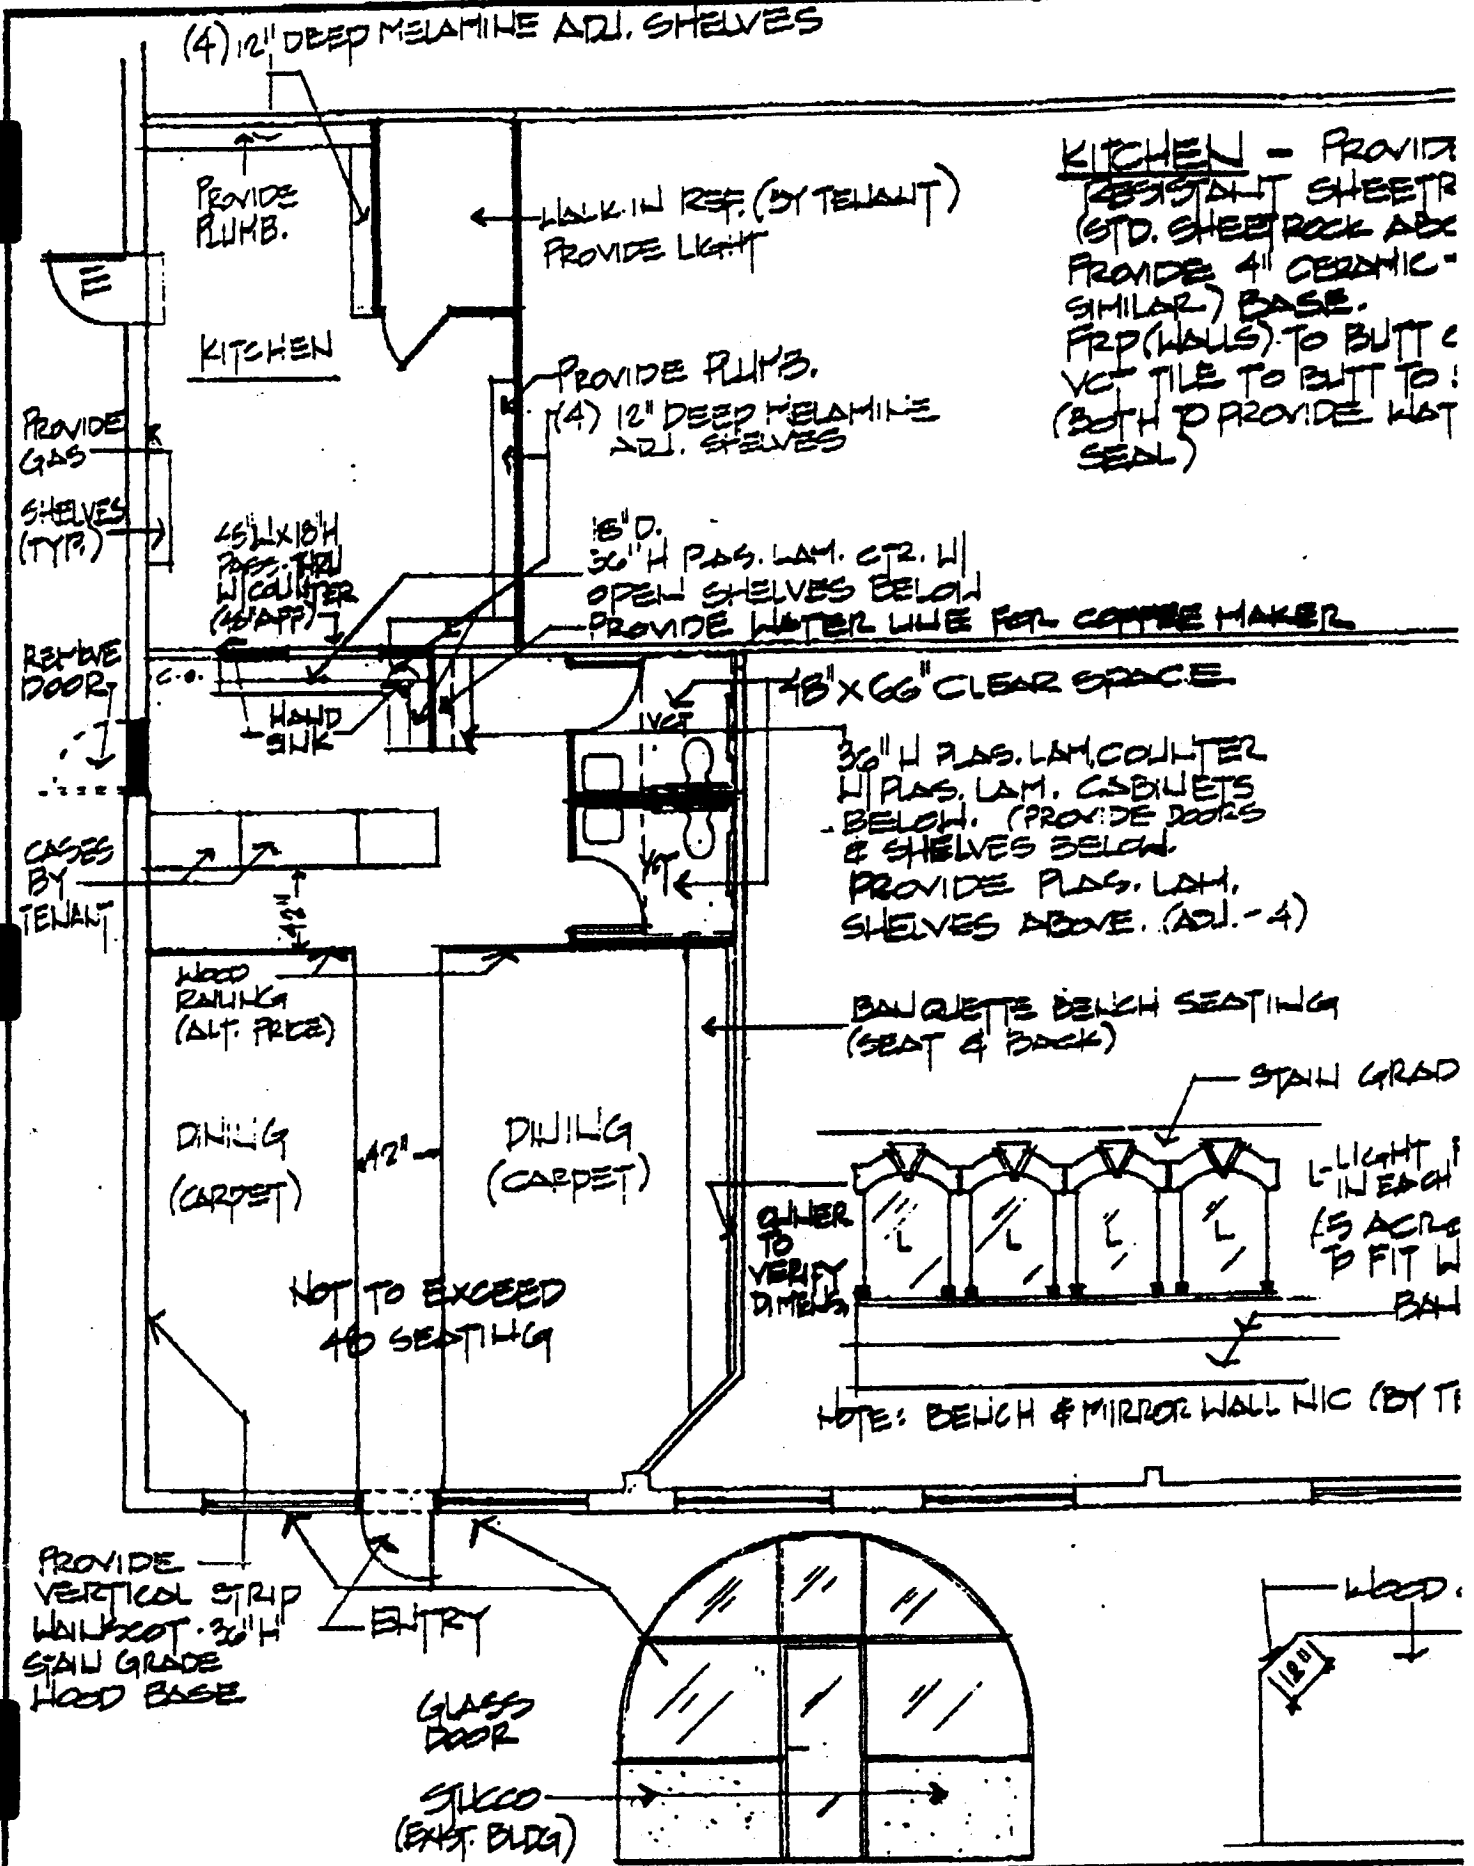 (4) 12" DEEP MELAMINE ADJ. SHELVES
PROVIDE
PLUMB.
WALK-IN REF. (BY TENANT)
PROVIDE LIGHT
KITCHEN - PROVIDE
RESISTANT SHEETR
(STD. SHEETROCK ABO
PROVIDE 4" CERAMIC
SIMILAR) BASE.
FRP (WALLS) TO BUTT
VCT TILE TO BUTT TO
(BOTH TO PROVIDE WAT
SEAL)
E
KITCHEN
PROVIDE PLUMB.
(4) 12" DEEP MELAMINE
ADJ. SHELVES
PROVIDE
GAS
SHELVES
(TYP.)
18"H
PASS-THRU
W/COUNTER
18" D.
36" H PLAS. LAM. CTR. W/
OPEN SHELVES BELOW
PROVIDE WATER LINE FOR COFFEE MAKER
REMOVE
DOOR
C.O.
HAND
SINK
VCT
48" X 66" CLEAR SPACE
36" H PLAS. LAM. COUNTER
W/ PLAS. LAM. CABINETS
BELOW. (PROVIDE DOORS
& SHELVES BELOW.
PROVIDE PLAS. LAM.
SHELVES ABOVE. (ADJ. - 4)
CASES
BY
TENANT
42"
VCT
WOOD
RAILING
(ALT. PRICE)
BANQUETTE BENCH SEATING
(SEAT & BACK)
STAIN GRAD
DINING
(CARPET)
42"
DINING
(CARPET)
L-LIGHT
IN EACH
TO FIT W
BAN
OWNER
TO
VERIFY
DIMENS.
L L L L
NOT TO EXCEED
48 SEATING
NOTE: BENCH & MIRROR WALL NIC (BY TE
PROVIDE
VERTICAL STRIP
WAINSCOT - 36" H
STAIN GRADE
WOOD BASE
ENTRY
WOOD
18"
GLASS
DOOR
STUCCO
(EXIST. BLDG)